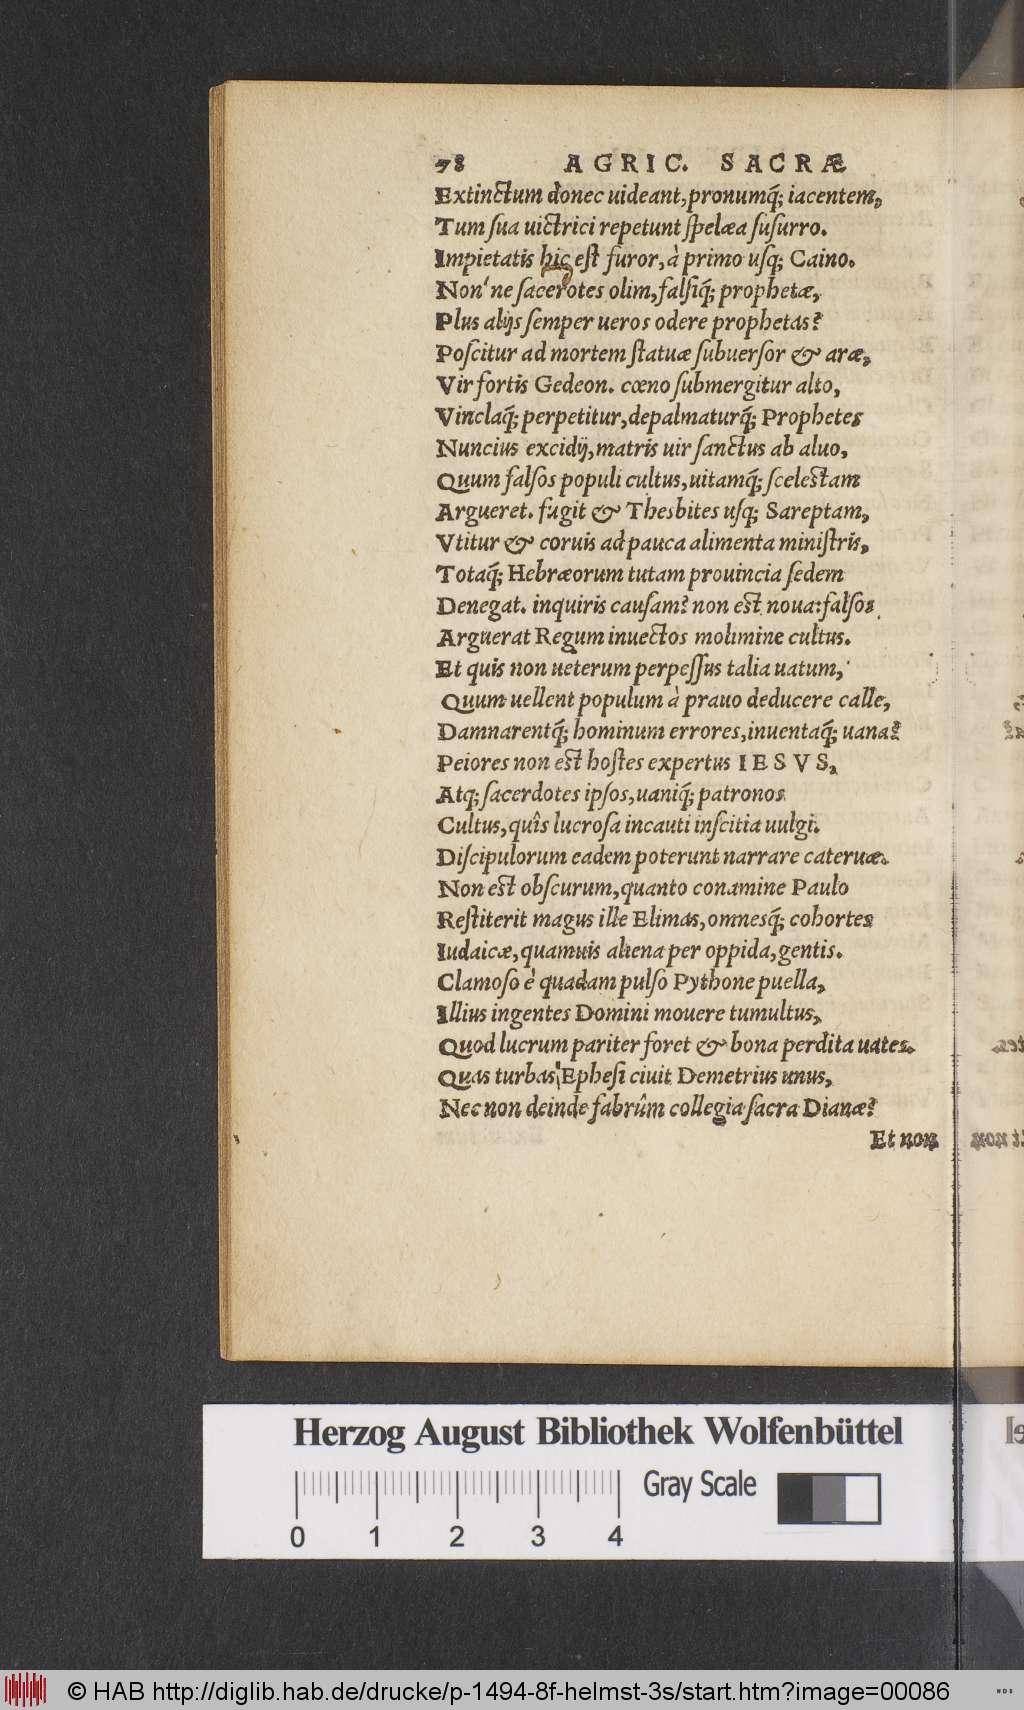 78 AGRIC. SACRÆ
Extinctum donec uideant, pronumq́; iacentem,
Tum ſua uictrici repetunt ſpelæa ſuſurro.
Impietatis hic eſt furor, à primo uſq; Caino.
Non'ne ſacerotes olim, falſiq́; prophetæ,
Plus alijs ſemper ueros odere prophetas?
Poſcitur ad mortem ſtatuæ ſubuerſor & aræ,
Vir fortis Gedeon. cœno ſubmergitur alto,
Vinclaq́; perpetitur, depalmaturq́; Prophetes
Nuncius excidij, matris uir ſanctus ab aluo,
Quum falſos populi cultus, uitamq́; ſceleſtam
Argueret. fugit & Thesbites uſq; Sareptam,
Vtitur & coruis ad pauca alimenta miniſtris,
Totaq́; Hebræorum tutam prouincia ſedem
Denegat. inquiris cauſam? non eſt noua: falſos
Arguerat Regum inuectos molimine cultus.
Et quis non ueterum perpeſſus talia uatum,
Quum uellent populum à prauo deducere calle,
Damnarentq́; hominum errores, inuentaq́; uana?
Peiores non eſt hoſtes expertus IESVS,
Atq; ſacerdotes ipſos, uaniq́; patronos
Cultus, quîs lucroſa incauti inſcitia uulgi.
Diſcipulorum eadem poterunt narrare cateruæ.
Non eſt obſcurum, quanto conamine Paulo
Reſtiterit magus ille Elimas, omnesq́; cohortes
Iudaicæ, quamuis aliena per oppida, gentis.
Clamoſo è quadam pulſo Pythone puella,
Illius ingentes Domini mouere tumultus,
Quod lucrum pariter foret & bona perdita uates.
Quas turbas Epheſi ciuit Demetrius unus,
Nec non deinde fabrûm collegia ſacra Dianæ?
Et non
Herzog August Bibliothek Wolfenbüttel
0 1 2 3 4 Gray Scale
© HAB http://diglib.hab.de/drucke/p-1494-8f-helmst-3s/start.htm?image=00086